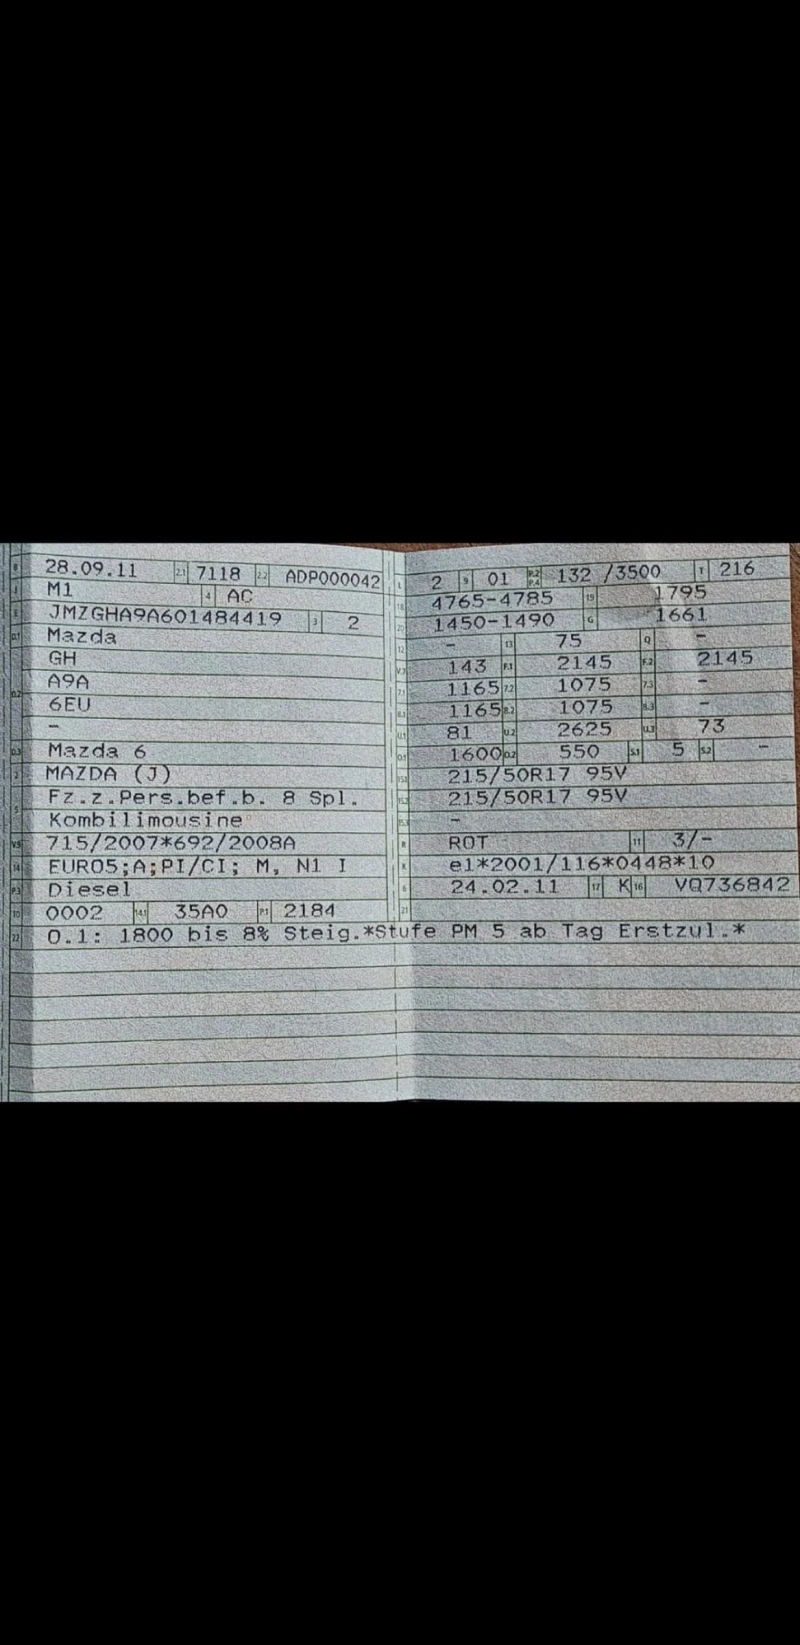 B 28.09.11 2.1 7118 2.2 ADP000042
J M1 4 AC
E JMZGHA9A601484419 3 2
D.1 Mazda
D.2 GH
A9A
6EU
-
D.3 Mazda 6
2 MAZDA (J)
5 Fz.z.Pers.bef.b. 8 Spl.
Kombilimousine
V.9 715/2007*692/2008A
14 EURO5;A;PI/CI; M, N1 I
P.3 Diesel
10 0002 14.1 35A0 P.1 2184
22 O.1: 1800 bis 8% Steig.*Stufe PM 5 ab Tag Erstzul.*
L 2 9 01 P.2 P.4 132 /3500 T 216
18 4765-4785 19 1795
20 1450-1490 G 1661
12 - 13 75 Q -
V.7 143 F.1 2145 F.2 2145
7.1 1165 7.2 1075 7.3 -
8.1 1165 8.2 1075 8.3 -
U.1 81 U.2 2625 U.3 73
O.1 1600 O.2 550 S.1 5 S.2 -
15.1 215/50R17 95V
15.2 215/50R17 95V
15.3 -
R ROT 11 3/-
K e1*2001/116*0448*10
6 24.02.11 17 K 16 VQ736842
21